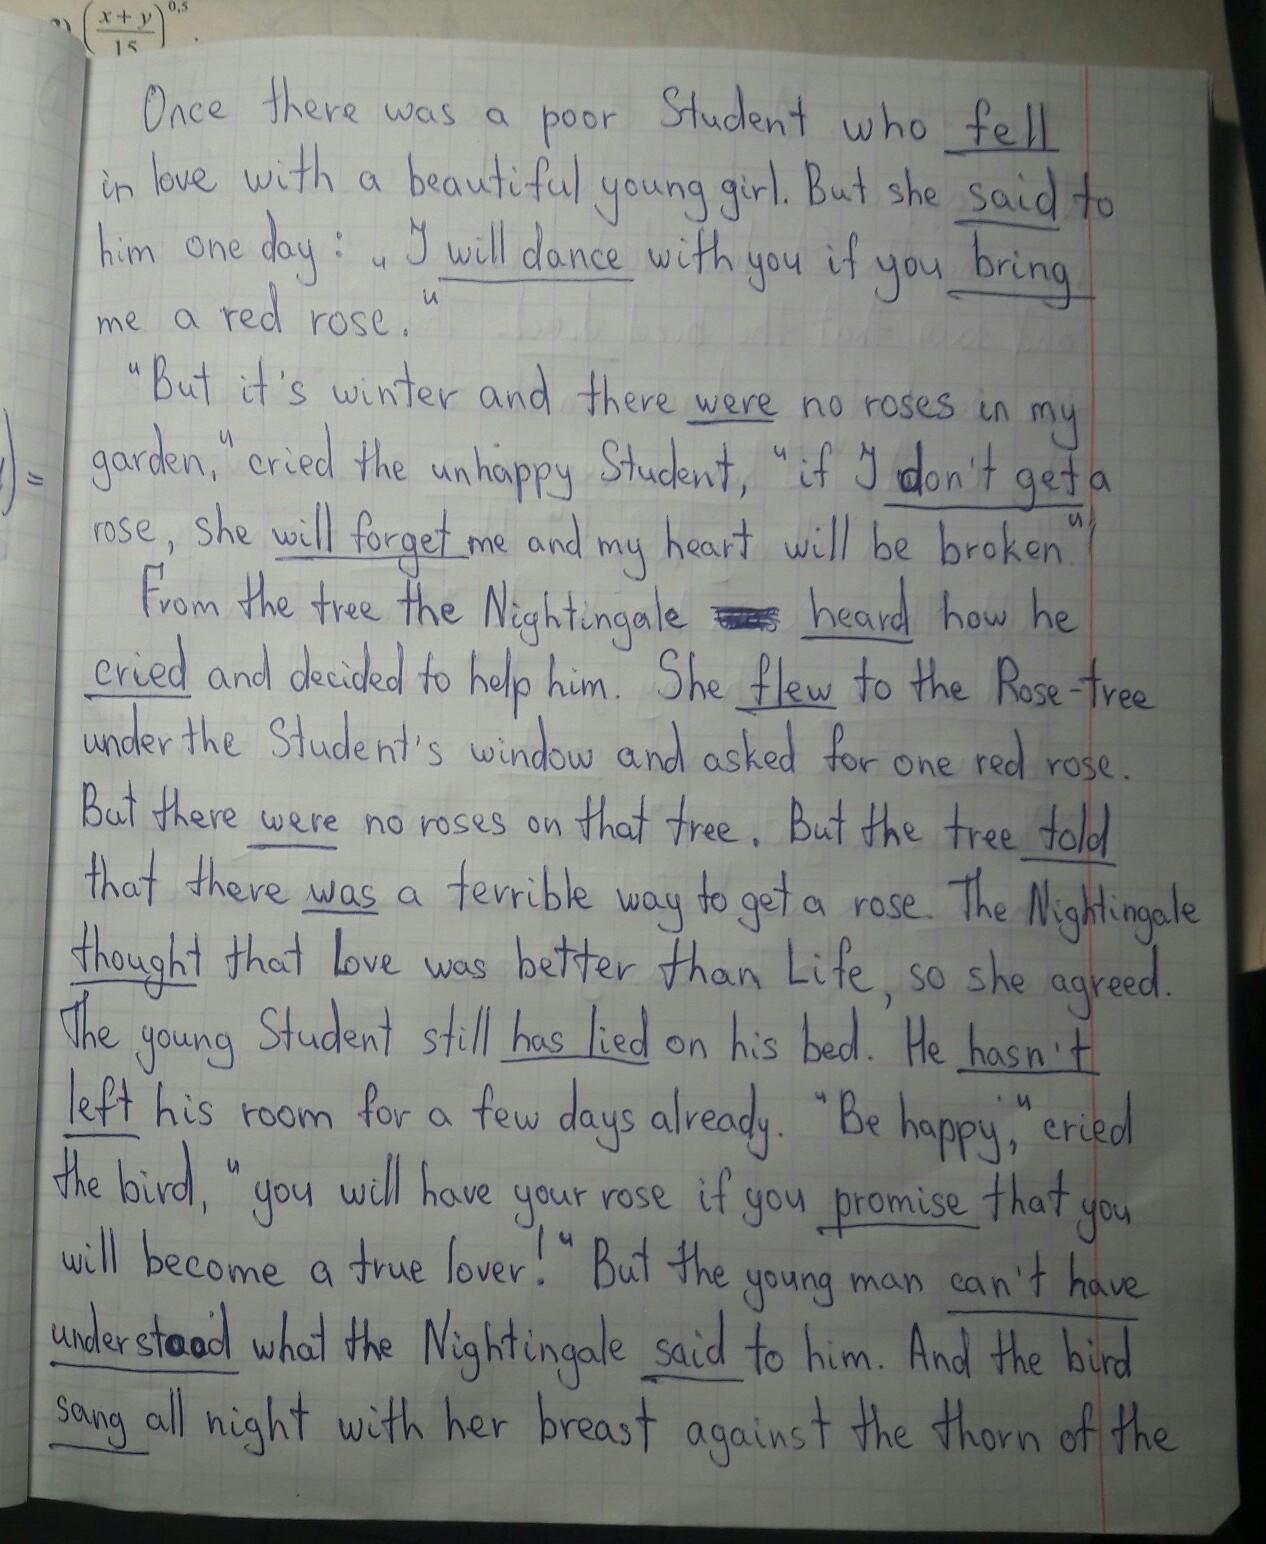 (x + y / 15)^0,5.
Once there was a poor Student who fell
in love with a beautiful young girl. But she said to
him one day: „I will dance with you if you bring
me a red rose."
"But it's winter and there were no roses in my
garden," cried the unhappy Student, "if I don't get a
rose, she will forget me and my heart will be broken"!
From the tree the Nightingale heard how he
cried and decided to help him. She flew to the Rose-tree
under the Student's window and asked for one red rose.
But there were no roses on that tree. But the tree told
that there was a terrible way to get a rose. The Nightingale
thought that Love was better than Life, so she agreed.
The young Student still has lied on his bed. He hasn't
left his room for a few days already. "Be happy," cried
the bird, "you will have your rose if you promise that you
will become a true lover!" But the young man can't have
understood what the Nightingale said to him. And the bird
sang all night with her breast against the thorn of the